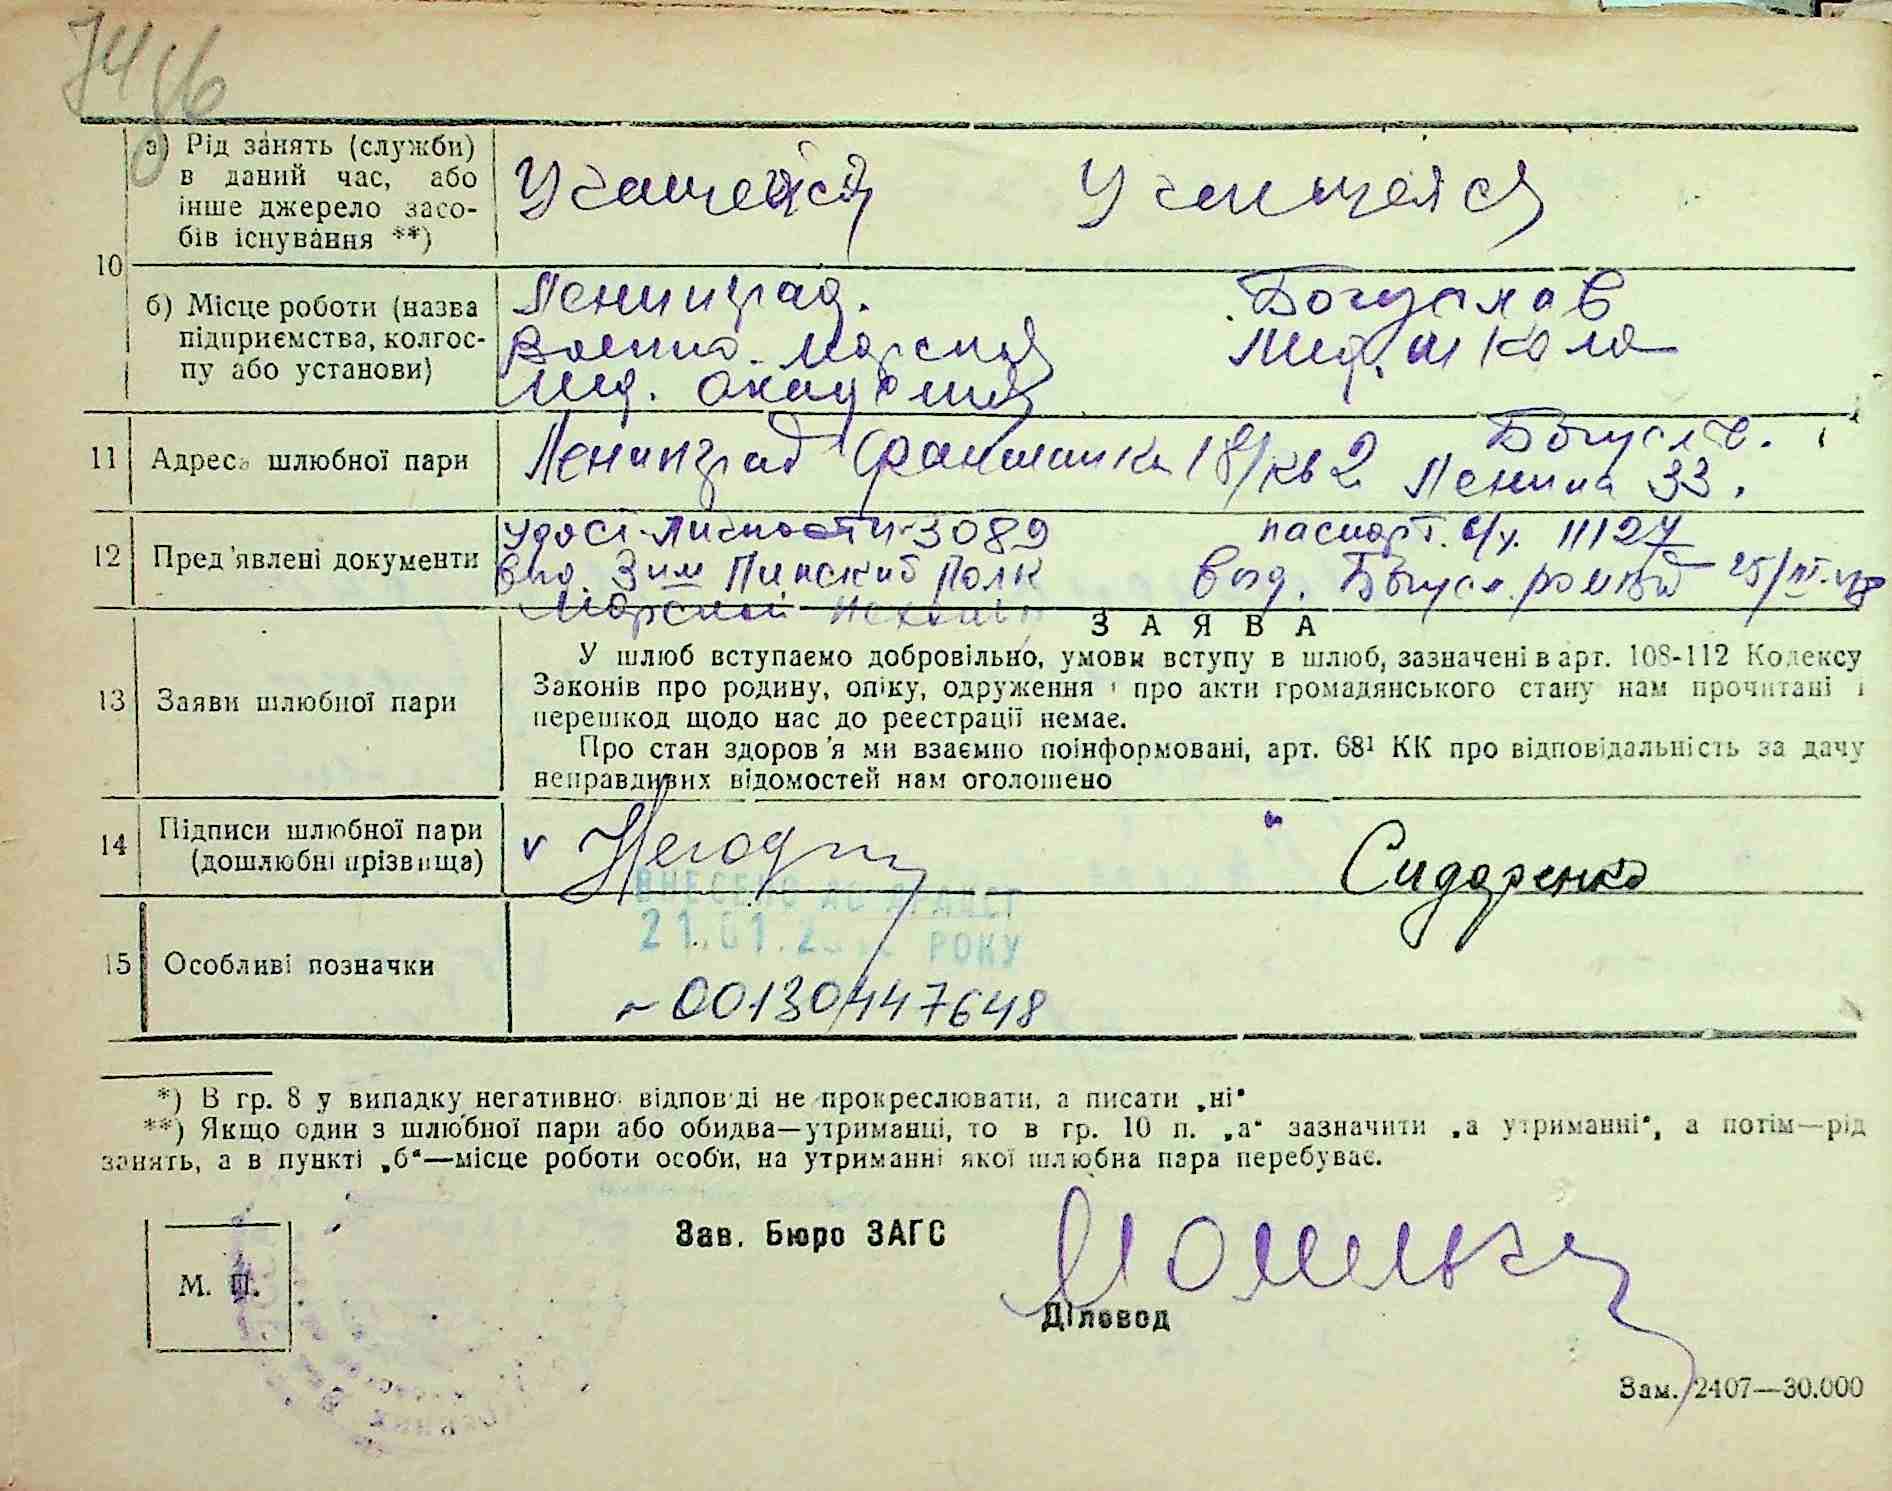 а) Рід занять (служби)
в даний час, або
інше джерело засо-
бів існування **)
Учащейся Учащеяся
10
б) Місце роботи (назва
підприємства, колгос-
пу або установи)
Ленинград. Богуслав
Военно-морская Мед. школа
Мед. академия
11 Адреса шлюбної пари
Ленинград Фонтанка 18/кв 2 Богусл
Ленина 33.
12 Пред'явлені документи
Удост. личности 3089 паспорт. 11127
выд. Зим Пинский Полк выд. Богусл.
Морской
З А Я В А
13 Заяви шлюбної пари
У шлюб вступаємо добровільно, умови вступу в шлюб, зазначені в арт. 108-112 Кодексу
Законів про родину, опіку, одруження і про акти громадянського стану нам прочитані і
перешкод щодо нас до реєстрації немає.
Про стан здоров'я ми взаємно поінформовані, арт. 68¹ КК про відповідальність за дачу
неправдивих відомостей нам оголошено
14 Підписи шлюбної пари
(дошлюбні прізвища)
v Сидоренко
ВНЕСЕНО ДО ДРАЦСГ
21.01. РОКУ
15 Особливі позначки
~00130447648
*) В гр. 8 у випадку негативно відповіді не прокреслювати, а писати „ні"
**) Якщо один з шлюбної пари або обидва—утриманці, то в гр. 10 п. „а" зазначити „а утриманні", а потім—рід
занять, а в пункті „б"—місце роботи особи, на утриманні якої шлюбна пара перебуває.
Зав. Бюро ЗАГС
М. П.
Діловод
Зам. 2407—30.000